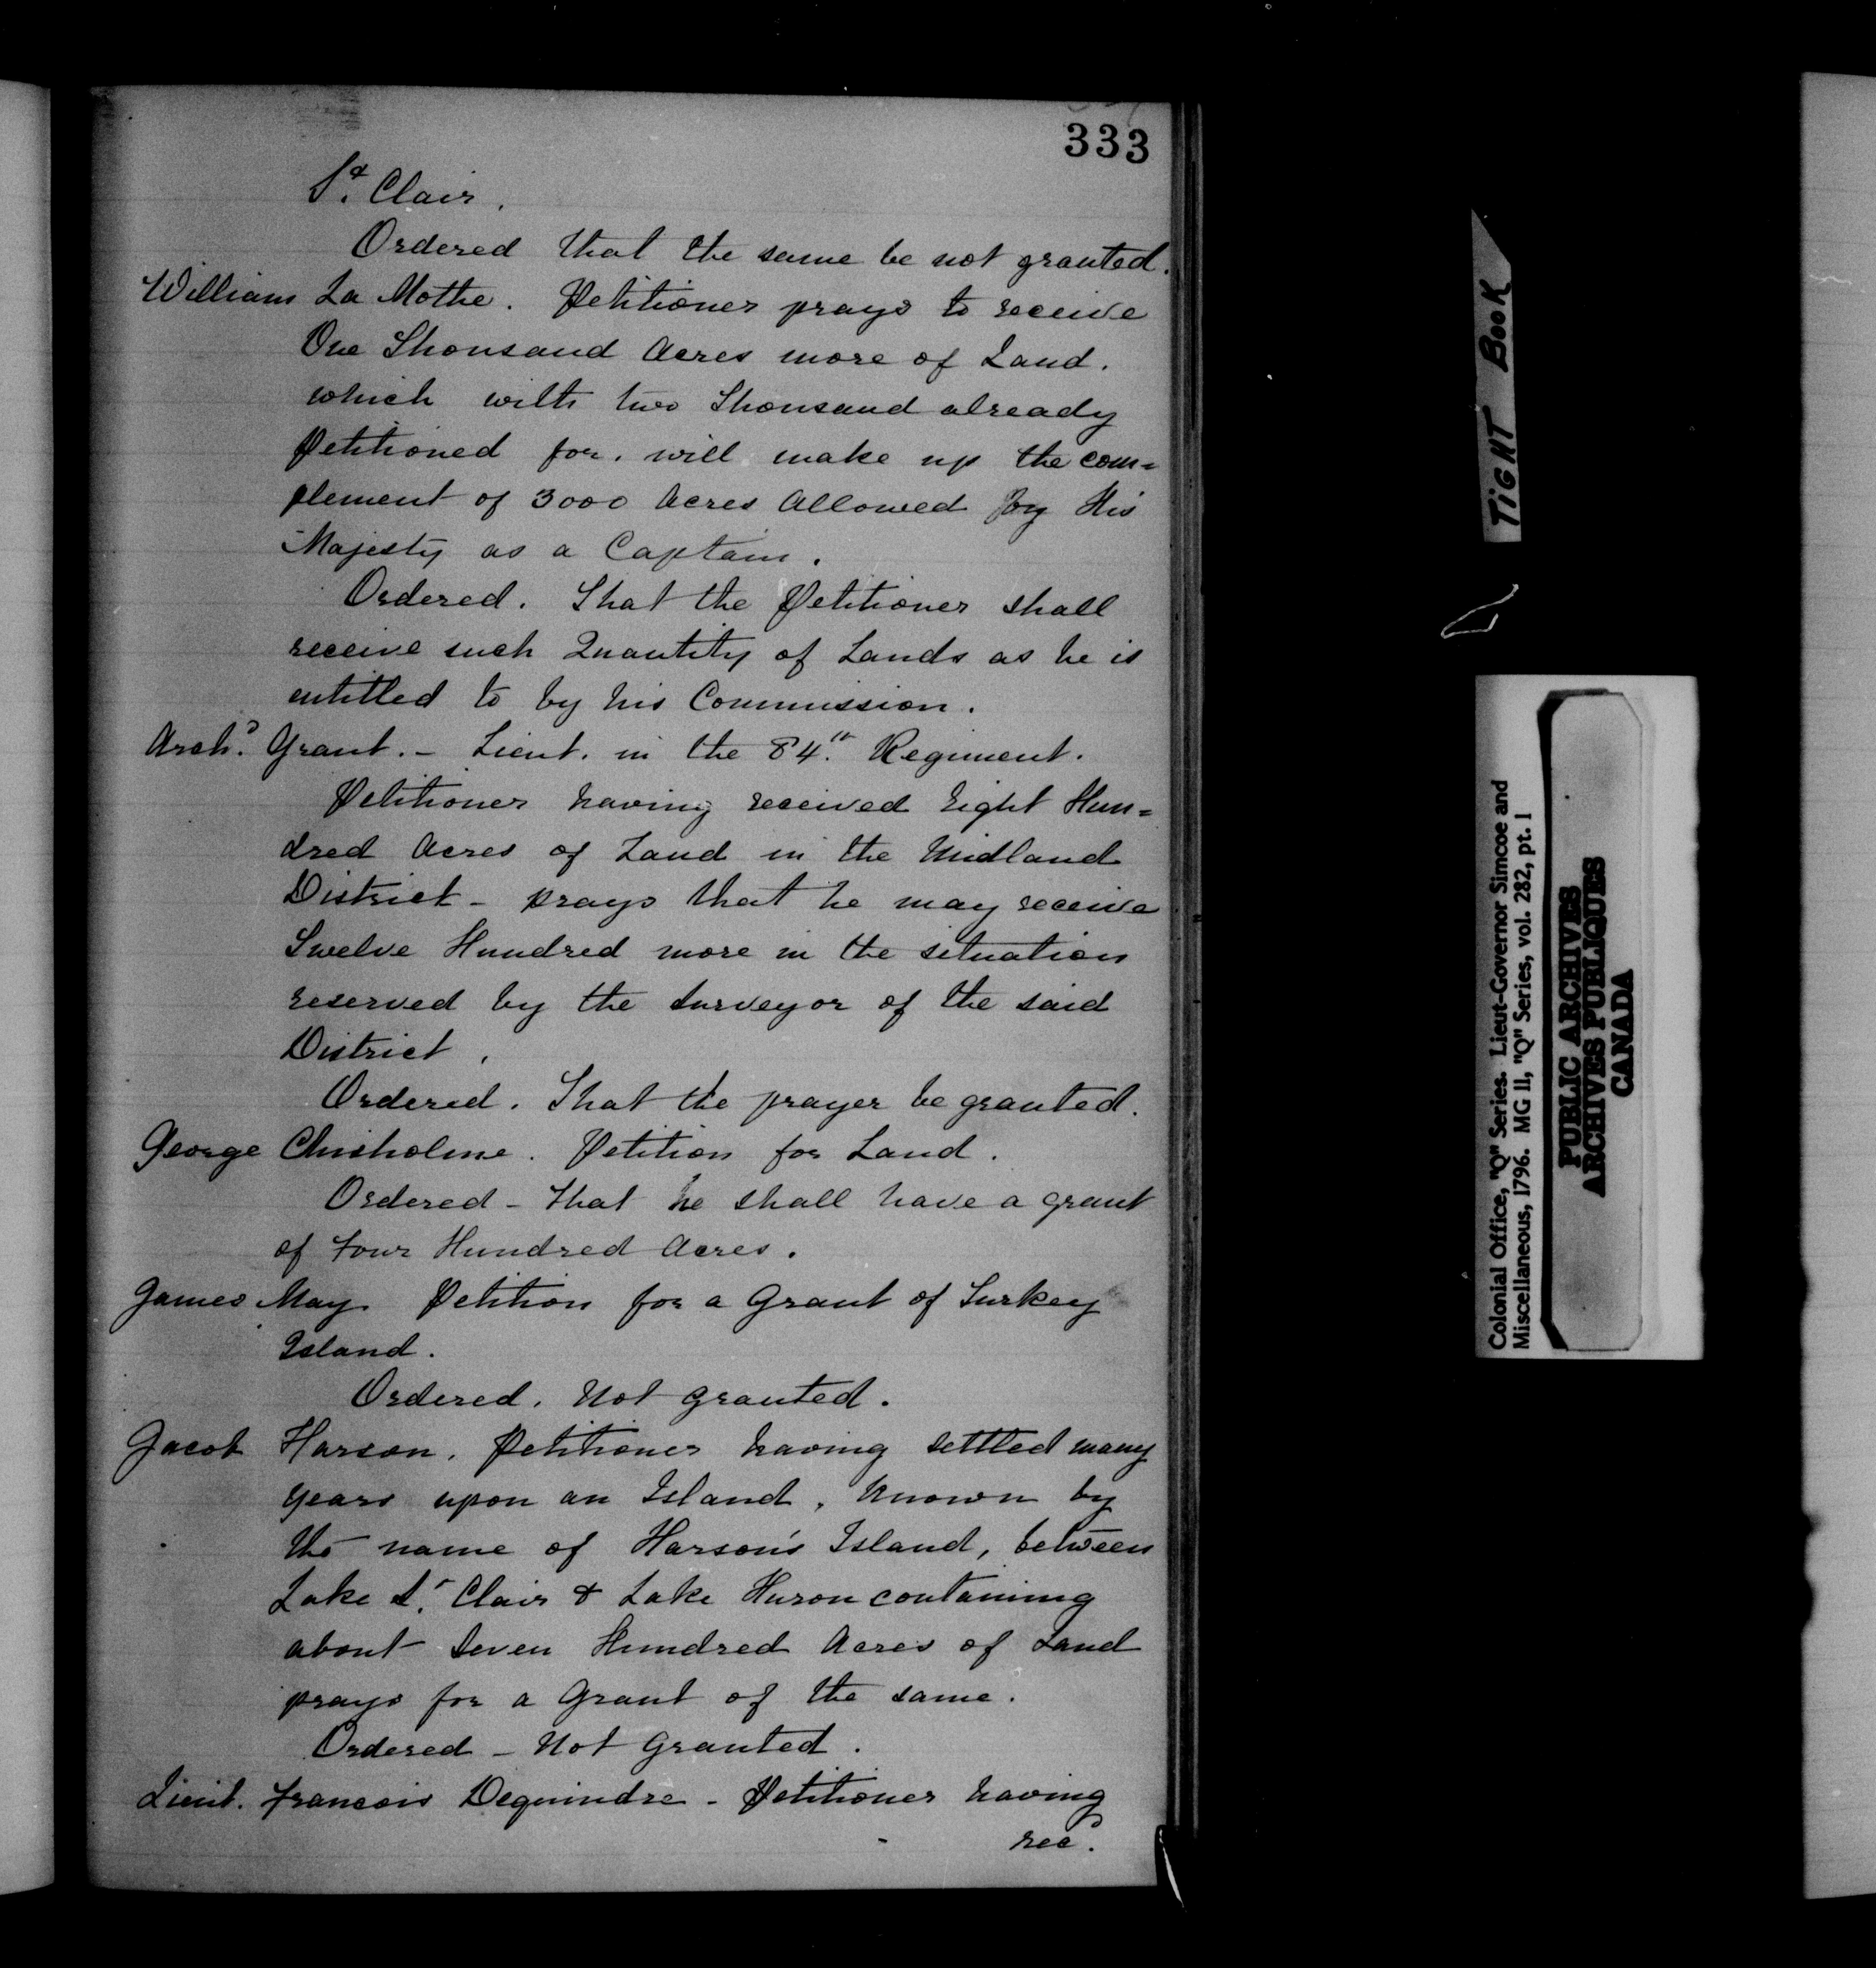 333
St. Clair.
Ordered that the same be not granted.
William La Mothe. Petitioner prays to receive
One Thousand Acres more of Land.
which with two Thousand already
Petitioned for, will make up the com=
plement of 3000 Acres Allowed by His
Majesty as a Captain.
Ordered. That the Petitioner shall
receive such Quantity of Lands as he is
entitled to by his Commission.
Archd. Grant. - Lieut. in the 84th. Regiment.
Petitioner having received Eight Hun=
dred Acres of Land in the Midland
District - prays that he may receive
Twelve Hundred more in the situation
reserved by the Surveyor of the said
District.
Ordered. That the prayer be granted.
George Chisholme. Petition for Land.
Ordered - that he shall have a grant
of four Hundred Acres.
James May. Petition for a Grant of Turkey
Island.
Ordered. Not granted.
Jacob Harson. Petitioner having settled many
years upon an Island, known by
the name of Harson's Island, between
Lake St. Clair & Lake Huron containing
about Seven Hundred Acres of Land
prays for a Grant of the same.
Ordered - Not Granted.
Lieut. Francois Dequindre - Petitioner having
recd.
TIGHT BOOK
Colonial Office, "Q" Series. Lieut-Governor Simcoe and
Miscellaneous, 1796. MG 11, "Q" Series, vol. 282, pt. 1
PUBLIC ARCHIVES
ARCHIVES PUBLIQUES
CANADA